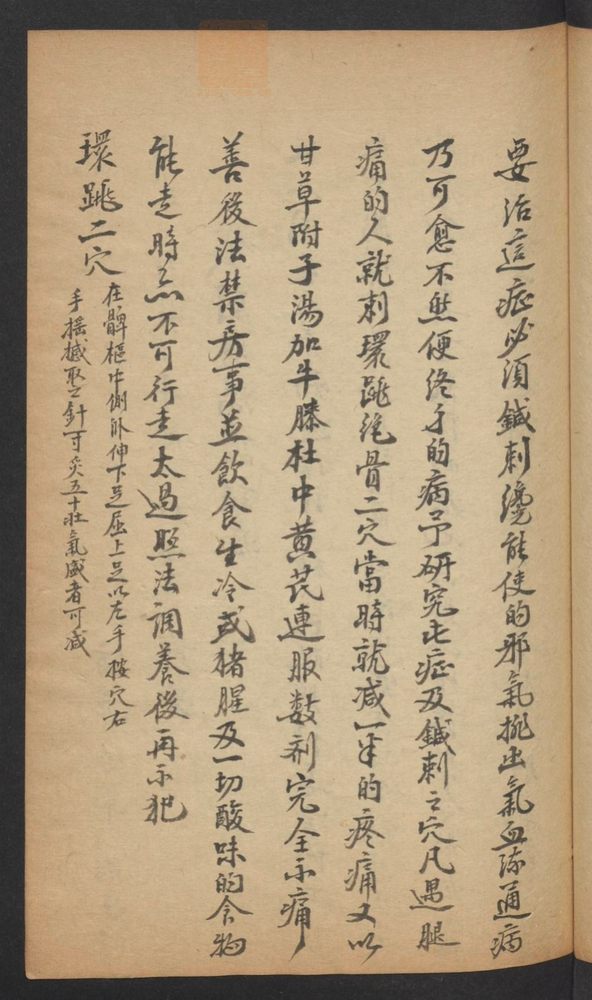 要治這症必須鍼刺纔能使的邪氣挑出氣血疏通病
乃可愈不然便終身的病予研究此症及鍼刺之穴凡遇腿
痛的人就刺環跳絶骨二穴當時就减一半的疼痛又以
甘草附子湯加牛膝杜中黄芪連服数剂完全不痛
善後法禁房事並飲食生冷或猪腥及一切酸味的食物
能走時亦不可行走太過照法調養後再不犯
環跳二穴
在髀樞中側卧伸下足屈上足以左手按穴右
手摇撼取之針可灸五十壮氣盛者可减